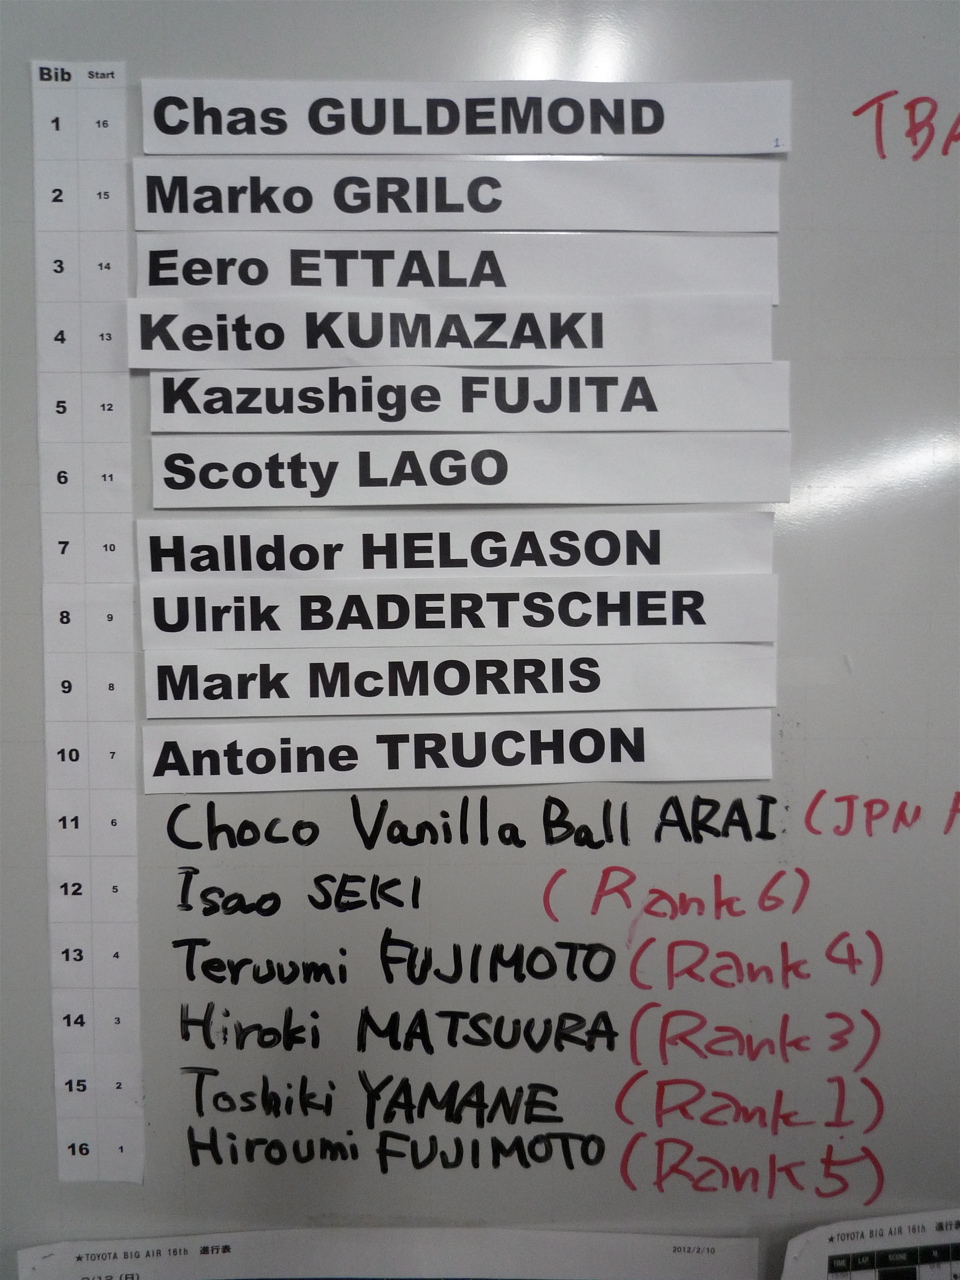 Bib Start
TBA
1 16 Chas GULDEMOND 1
2 15 Marko GRILC
3 14 Eero ETTALA
4 13 Keito KUMAZAKI
5 12 Kazushige FUJITA
6 11 Scotty LAGO
7 10 Halldor HELGASON
8 9 Ulrik BADERTSCHER
9 8 Mark McMORRIS
10 7 Antoine TRUCHON
11 6 Choco Vanilla Ball ARAI (JPN
12 5 Isao SEKI (Rank 6)
13 4 Teruumi FUJIMOTO (Rank 4)
14 3 Hiroki MATSUURA (Rank 3)
15 2 Toshiki YAMANE (Rank 1)
16 1 Hiroumi FUJIMOTO (Rank 5)
★TOYOTA BIG AIR 16th 進行表 2012/2/10
★TOYOTA BIG AIR 16th 進行
TIME LAP SCENE M